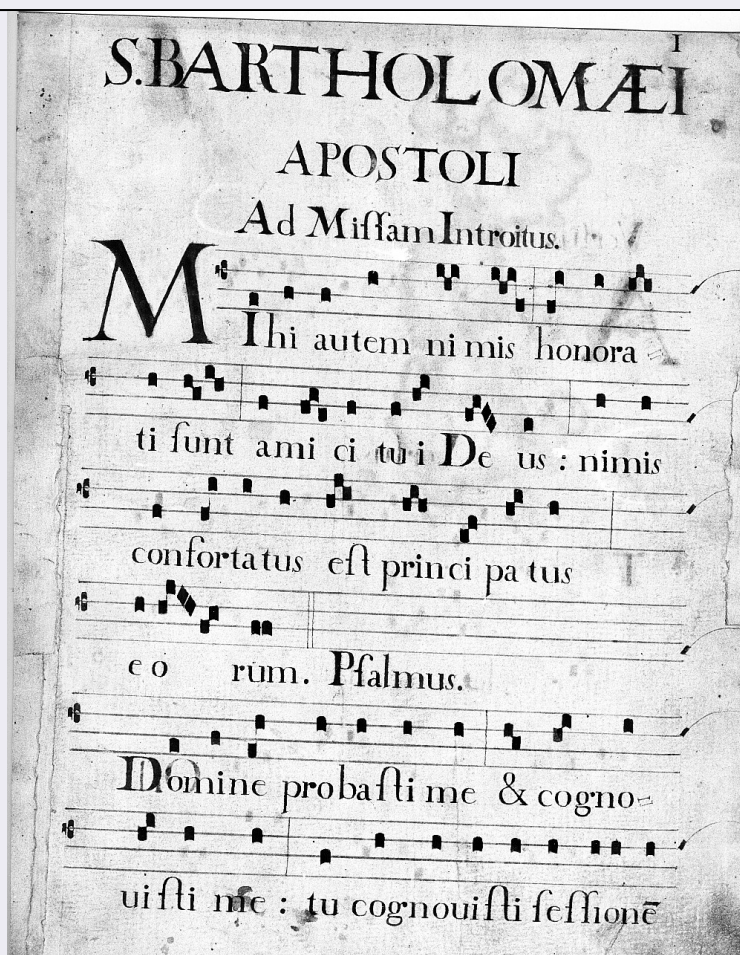 I
S. BARTHOLOMÆI
APOSTOLI
Ad Miſſam Introitus.
MIhi autem nimis honora
ti ſunt amici tui Deus : nimis
confortatus eſt principatus
eorum. Pſalmus.
Domine probaſti me & cogno=
uiſti me : tu cognouiſti ſeſſionē